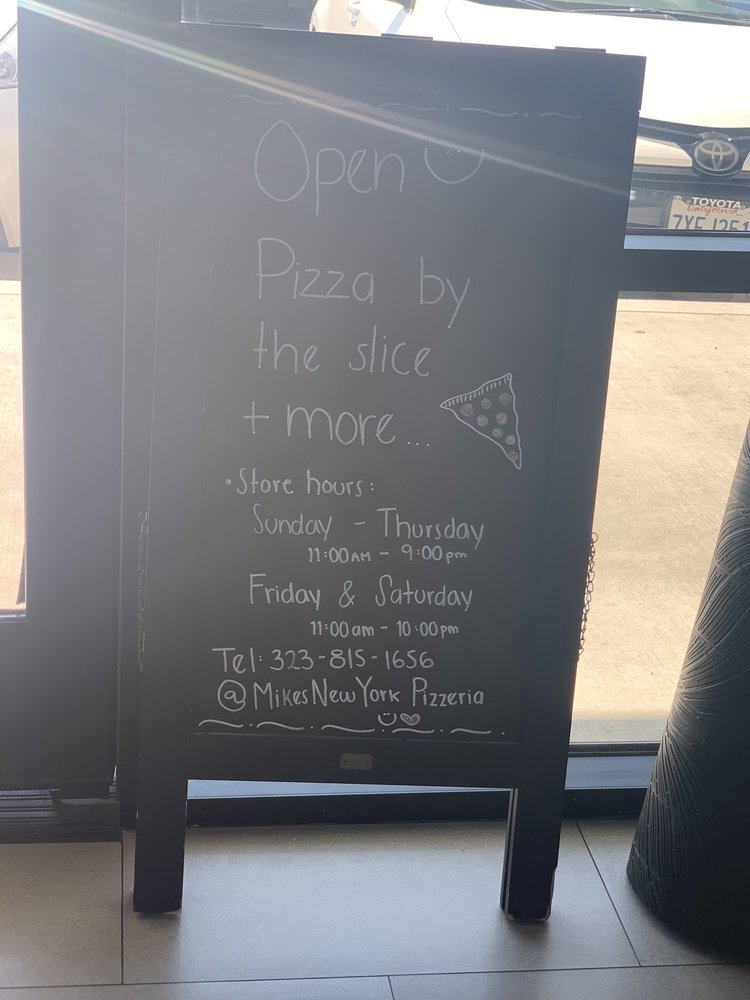 Open
Pizza by
the slice
+ more...
• Store hours:
Sunday - Thursday
11:00AM - 9:00pm
Friday & Saturday
11:00am - 10:00pm
Tel: 323-815-1656
@MikesNewYork Pizzeria
TOYOTA
California